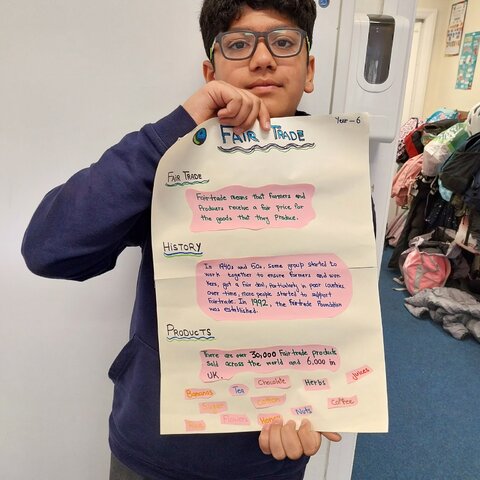 Year - 6
FAIR TRADE
FAIR TRADE
Fairtrade means that Farmers and
Producers receive a fair price for
the goods that they produce.
HISTORY
In 1940s and 50s, some group started to
work together to ensure farmers and wor
kers, got a fair deal, Particularly in poor countries
over-time, more people started to support
Fairtrade. In 1992, the Fairtrade Foundation
was established.
PRODUCTS
There are over 30,000 Fairtrade products
sold across the world and 6,000 in
UK.
Bananas Tea Chocolate Herbs Juices
Sugar Cotton Nuts Coffee
Rice Flowers Honey